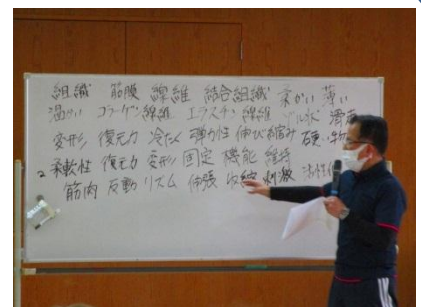 組織 筋膜 線維 結合組織 柔かい 薄い
温かい コラーゲン線維 エラスチン 線維 ゾル状
変形 復元力 冷たく 弾力性 伸び縮み 硬い物
柔軟性 復元力 変形 固定 機能 維持
筋肉 反動 リズム 伸張 収縮 刺激 活性化